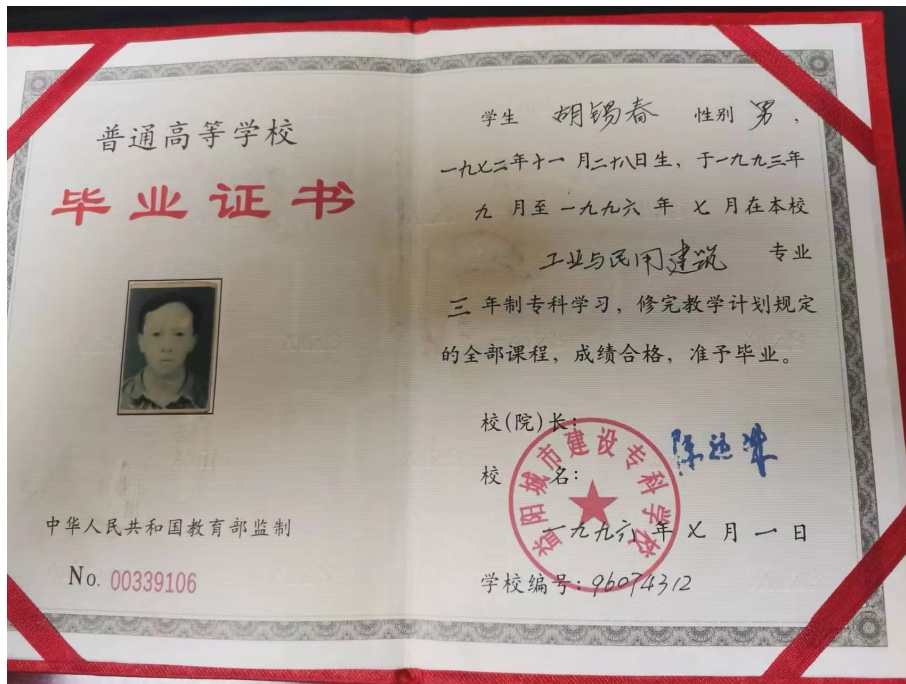 普通高等学校
毕业证书
中华人民共和国教育部监制
No. 00339106
学生 胡锡春 性别 男，
一九七二年十一月二十八日生，于一九九三年
九月至一九九六年七月在本校
工业与民用建筑 专业
三年制专科学习，修完教学计划规定
的全部课程，成绩合格，准予毕业。
校(院)长：
校 名：
阳城市建设专科学校
一九九六年七月一日
学校编号：96074312